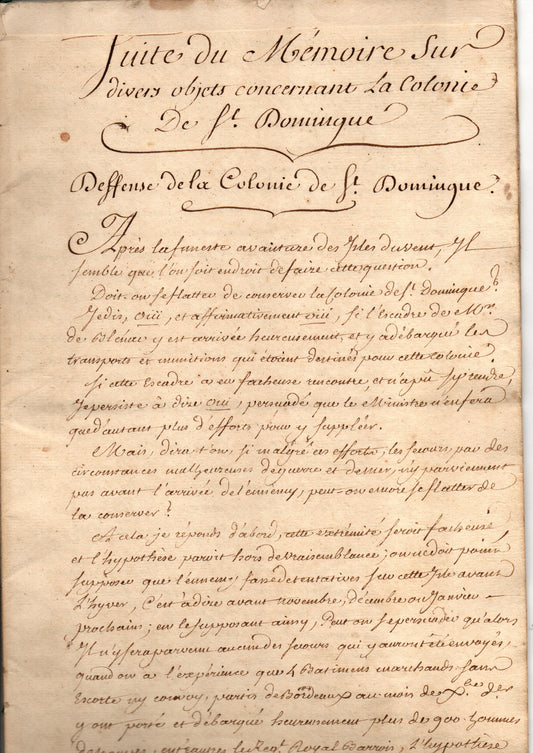 Suite du Mémoire Sur
divers objets concernant La Colonie
De St. Domingue
Deffense de la Colonie de St. Domingue.
Après la funeste avanture des Isles du vent, Il
semble que l'on soit en droit de faire cette question.
Doit-on se flatter de conserver la Colonie de St. Domingue?
Je dis, oui, et affirmativement oui, si l'Escadre de Mr.
de Blénac y est arrivée heureusement, et y a débarqué les
transports et munitions qui étoient destinés pour cette colonie.
Si cette Escadre a eu facheuse rencontre et n'a pû s'y rendre,
Je persiste à dire oui, persuadé que le Ministre n'en fera
que d'autant plus d'efforts pour y suppléer.
Mais, dira t'on, si malgré ces efforts, les secours par des
circonstances malheureuses de guerre et de mer, n'y parviennent
pas avant l'arrivée de l'ennemy, peut-on encore se flatter de
la conserver?
A cela je réponds d'abord, cette extrémité seroit facheuse,
et l'hypothèse paroit hors de vraisemblance; on ne doit point
supposer que l'ennemy fasse de tentatives sur cette Isle avant
L'hyver, C'est à dire avant novembre, décembre ou Janvier
prochains; en le supposant ainsy, Peut on se persuader qu'alors
Il n'y sera parvenu aucun des secours qui y auront été envoyés,
quand on a l'expérience que 4 Batimens marchands sans
Escorte ny convoy, partis de Bordeaux au mois de Xbre. der
y ont porté et débarqué heureusement plus de 900 hommes
entr'autres le Regt. Royal Barrois, L'hypothèse